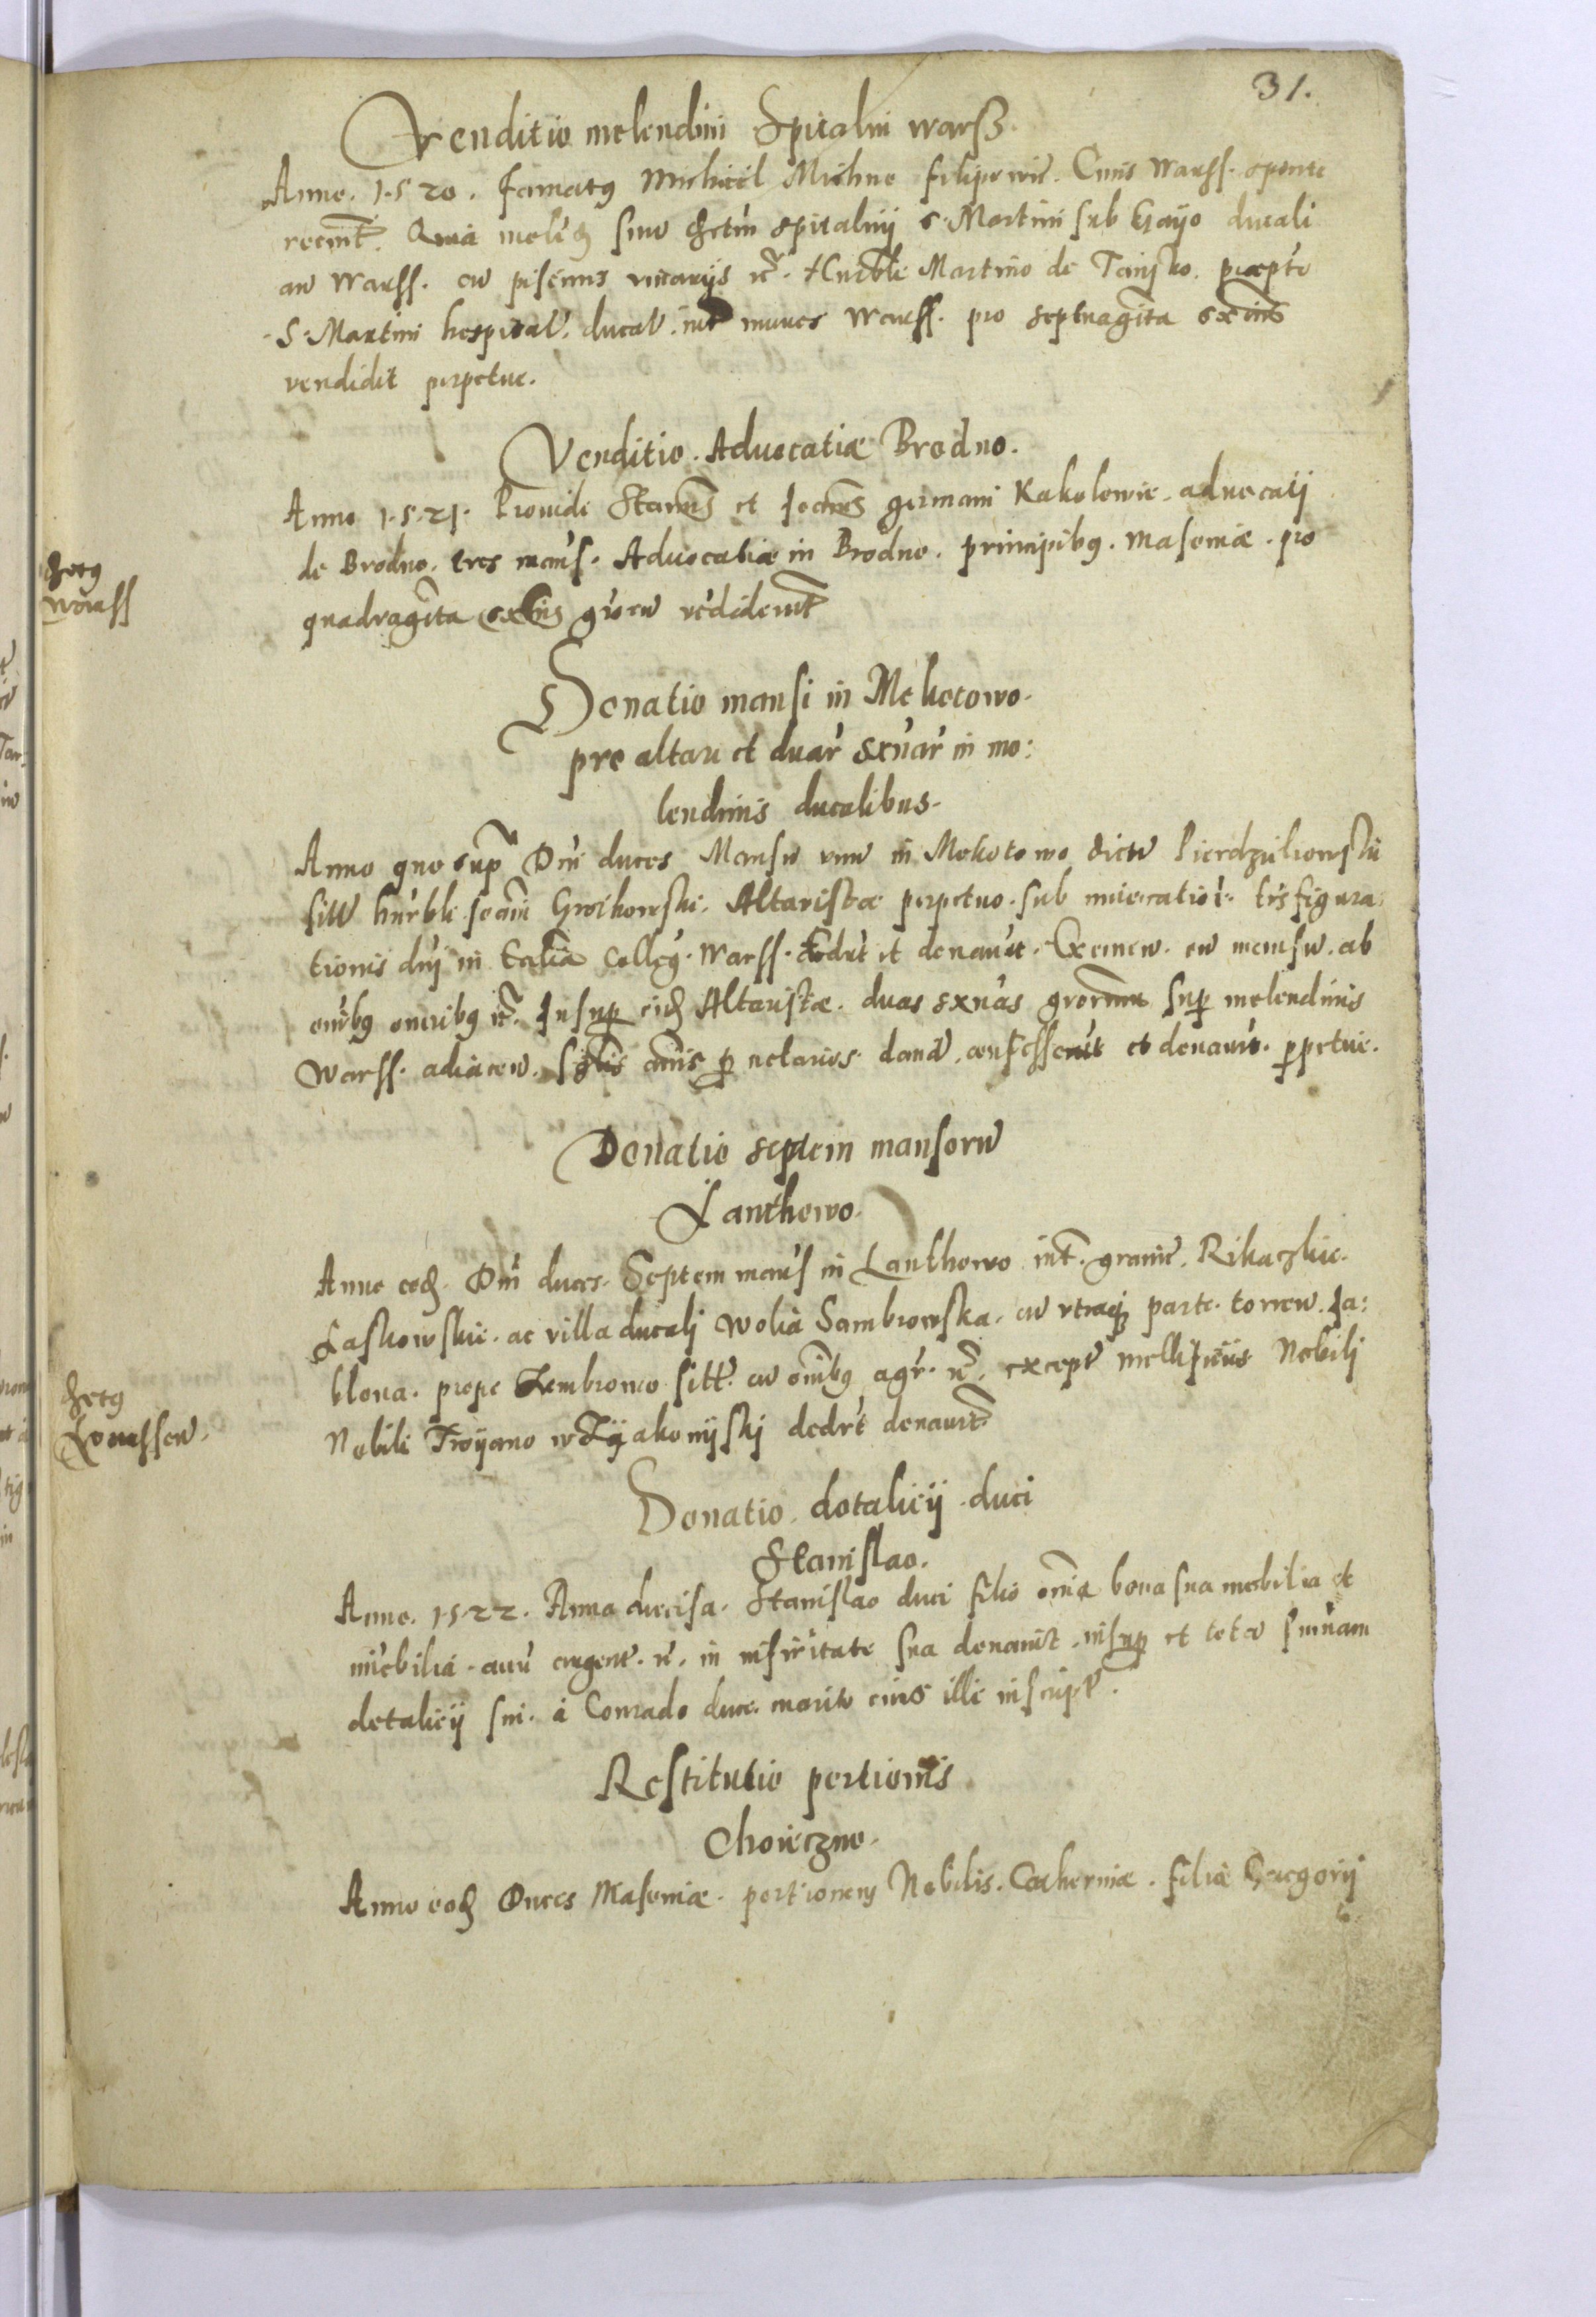 31.
Venditio molendini Spitalni warß.
Anno. 1520. Famatus Michael Michno filipowic. Civis Warss. sponte
recint. Quia molend. suu dictu spitalnij S. Martini sub Gayo ducali
an Warss. cu piscinis vivarijs Hnrble Martino de præpto
S. Martini hospital. ducal. int muros Warss. pro septuaginta sexnis
vendidit perpetue.
Venditio. Advocatiæ Brodno.
Anno 1521. Providi Stanis et Joanes germani Kakolowie. advocatj
de Brodno. tres mans. Advocatiæ in Brodno. principibus. Masoviæ. pro
quadraginta sexnis grorw vediderut
Distrs
Warss
Donatio mansi in Mokotowo
pro altari et duar sxnar in mo:
lendinis ducalibus.
Anno quo sup Dni duces Mansu unu in Mokotowo dictu
sitw hnrbli Joanni Groikowski. Altaristæ perpetuo. sub invocatioe. trsfigura:
tionis dnj in Eclia Colleg. Warss. dedrt et donavrt. Exemew. ew mansu. ab
omibus oneribus Insup eid Altaristæ. duas sxnas grorum sup molendinis
Warss. adiacew. siglis annis p notarios. dand. et donavrt. ppetue.
Donatio septem mansorw
Lanthowo.
Anno eod. Dni duces. Septem mans in Lanthowo int. granic. Rikaczkie.
Laskowskie. ac villa ducalj Wolia Sambrowska. cu utraq parte. torrew. Ja:
blona. prope Zembrowo sitt. cu omibus agr. except mellificiis Nobilj
Nobili Troyano dedrt donavrt
Distrs
Donatio. dotalicij. duci
Stanislao.
Anno. 1522. Anna ducissa. Stanislao duci filio omia bona sua mobilia et
imobilia. auru argent. in infirmitate sua donavit. insup et tota sumam
dotalicij sui. à Conrado duce. marito eius illi inscript.
Restitutio portionis
Choieczno.
Anno eod Duces Masoviæ. portionem Nobilis. Catherinæ. filiæ Gregorij